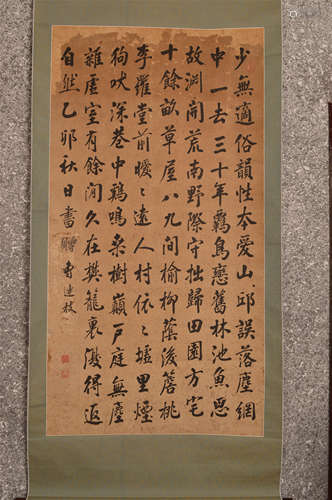 少無適俗韻性本愛山邱誤落塵網
中一去三十年羈鳥戀舊林池魚思
故淵開荒南野際守拙歸田園方宅
十餘畝草屋八九間榆柳蔭後簷桃
李羅堂前曖曖遠人村依依墟里煙
狗吠深巷中鷄鳴桑樹巔戶庭無塵
雜虛室有餘閒久在樊籠裏復得返
自然乙卯秋日書